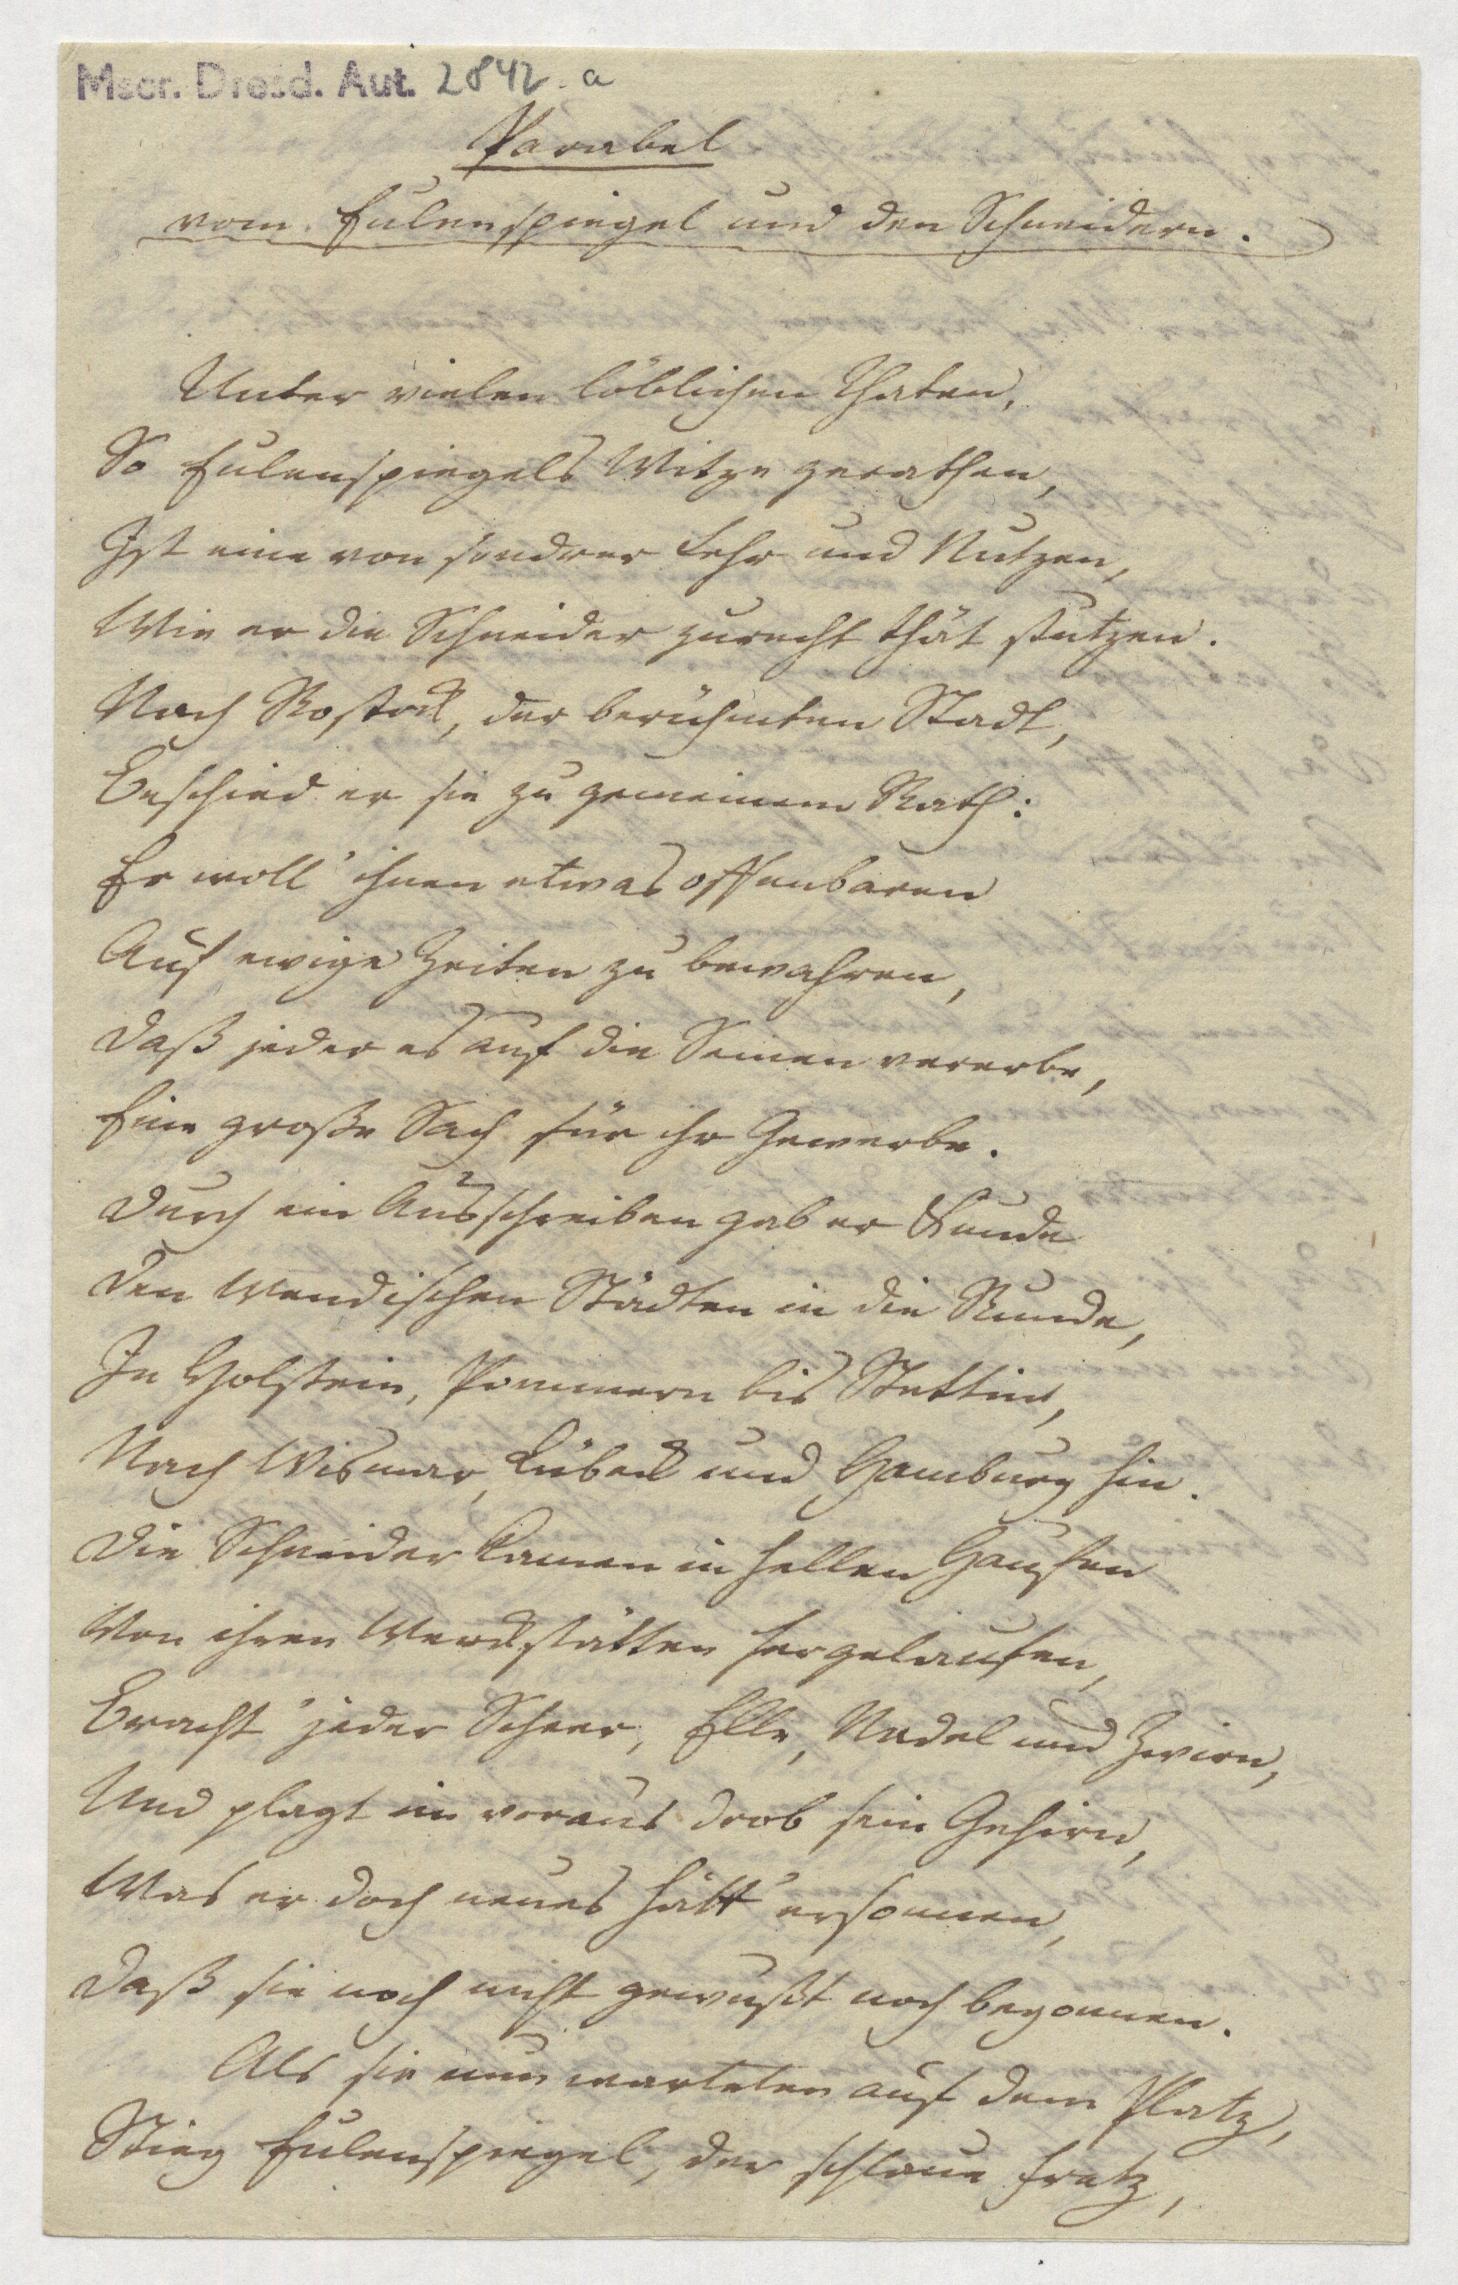 Mscr. Dresd. Aut. 2842 a
Parabel
vom Eulenspiegel und den Schneidern.
Unter vielen löblichen Thaten,
So Eulenspiegels Witze gerathen,
Ist eine von sondrer Lehr und Nutzen,
Wie er die Schneider zurecht thät stutzen.
Nach Rostock, der berühmten Stadt,
Beschied er sie zu gemeinem Rath:
Er woll' ihnen etwas offenbaren
Auf ewige Zeiten zu bewahren,
Daß jeder es auf die Seinen vererbe,
Eine große Sach für ihr Gewerbe.
Durch ein Ausschreiben gab er Kunde
Den Wendischen Städten in die Runde,
In Holstein, Pommern bis Stettin,
Nach Wismar, Lübeck und Hamburg hin.
Die Schneider kamen in hellen Haufen
Von ihren Werckstätten hergelaufen,
Bracht' jeder Scheer, Elle, Nadel und Zwirn,
Und plagt im voraus drob sein Gehirn,
Was er doch neues hätt' ersonnen,
Daß sie noch nicht gewußt noch begonnen.
Als sie nun warteten auf dem Platz,
Stieg Eulenspiegel, der schlaue Fratz,